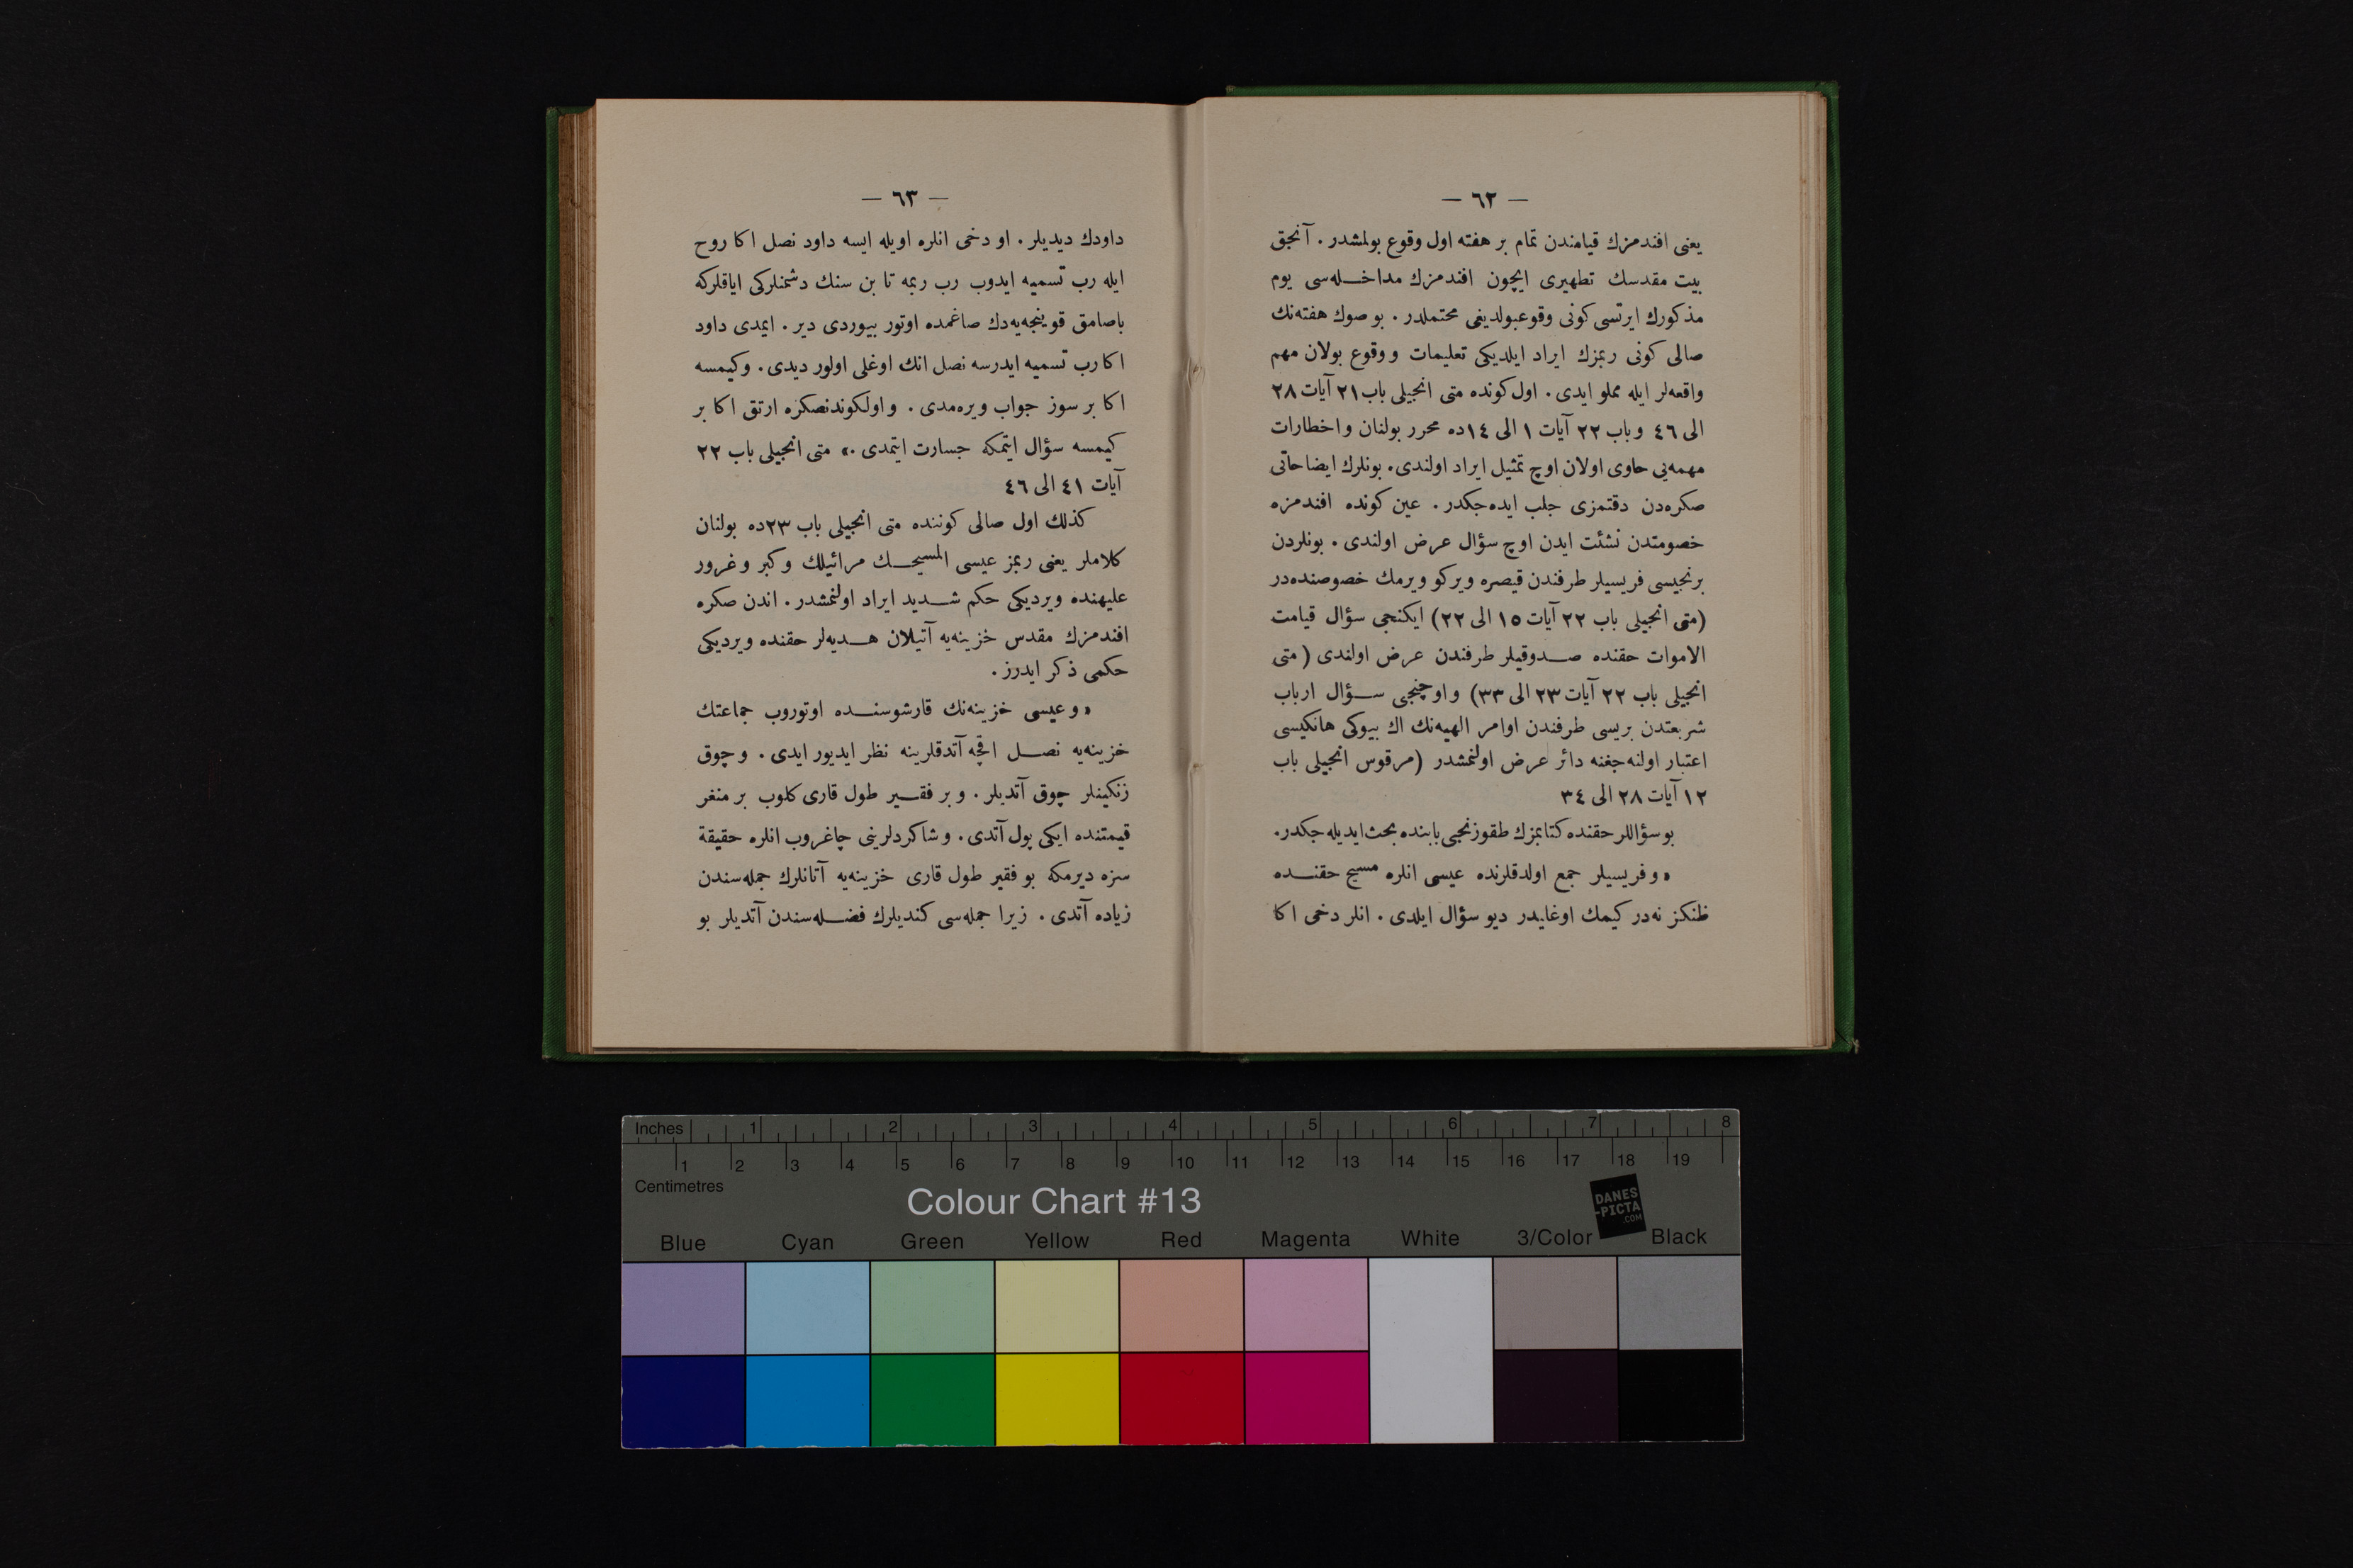 — ٦٢ —
يعنى افندمزك قيامندن تمام بر هفته اول وقوع بولمشدر . آنجق
بيت مقدسك تطهيرى ايچون افندمزك مداخله‌سى يوم
مذكورك ايرتسى كونى وقوعبولديغى محتملدر . بو صوك هفته‌نك
صالى كونى ربمزك ايراد ايلديكى تعليمات و وقوع بولان مهم
واقعه‌لر ايله مملو ايدى . اول كونده متى انجيلى باب ٢١ آيات ٢٨
الى ٤٦ و باب ٢٢ آيات ١ الى ١٤ده محرر بولنان و اخطارات
مهمه‌يى حاوى اولان اوچ تمثيل ايراد اولندى . بونلرك ايضاحاتى
صكره‌دن دقتمزى جلب ايده‌جكدر . عين كونده افندمزه
خصومتدن نشئت ايدن اوچ سؤال عرض اولندى . بونلردن
برنجيسى فريسيلر طرفندن قيصره ويركو ويرمك خصوصنده‌در
(متى انجيلى باب ٢٢ آيات ١٥ الى ٢٢) ايكنجى سؤال قيامت
الاموات حقنده صدوقيلر طرفندن عرض اولندى ( متى
انجيلى باب ٢٢ آيات ٢٣ الى ٣٣) و اوچنجى سؤال ارباب
شريعتدن بريسى طرفندن اوامر الهيه‌نك اك بيوكى هانكيسى
اعتبار اولنه‌جغنه دائر عرض اولنمشدر (مرقوس انجيلى باب
١٢ آيات ٢٨ الى ٣٤
بو سؤاللر حقنده كتابمزك طقوزنجى بابنده بحث ايديله‌جكدر.
« و فريسيلر جمع اولدقلرنده عيسى انلره مسيح حقنده
ظنكز نه‌در كيمك اوغليدر ديو سؤال ايلدى . انلر دخى اكا
— ٦٣ —
داودك ديديلر . او دخى انلره اويله ايسه داود نصل اكا روح
ايله رب تسميه ايدوب رب ربمه تا بن سنك دشمنلركى اياقلركه
باصامق قوينجه‌يه‌دك صاغمده اوتور بيوردى دير . ايمدى داود
اكا رب تسميه ايدرسه نصل انك اوغلى اولور ديدى . و كيمسه
اكا بر سوز جواب ويره‌مدى . و اولكوندنصكره ارتق اكا بر
كيمسه سؤال ايتمكه جسارت ايتمدى .» متى انجيلى باب ٢٢
آيات ٤١ الى ٤٦
كذلك اول صالى كوننده متى انجيلى باب ٢٣ده بولنان
كلاملر يعنى ربمز عيسى المسيحك مرائيلك و كبر و غرور
عليهنده ويرديكى حكم شديد ايراد اولنمشدر . اندن صكره
افندمزك مقدس خزينه‌يه آتيلان هديه‌لر حقنده ويرديكى
حكمى ذكر ايدرز .
« و عيسى خزينه‌نك قارشوسنده اوتوروب جماعتك
خزينه‌يه نصل اقچه آتدقلرينه نظر ايديور ايدى . و چوق
زنكينلر چوق آتديلر . و بر فقير طول قارى كلوب بر منغر
قيمتنده ايكى پول آتدى . و شاكردلرينى چاغروب انلره حقيقة
سزه ديرمكه بو فقير طول قارى خزينه‌يه آتانلرك جمله‌سندن
زياده آتدى . زيرا جمله‌سى كنديلرك فضله‌سندن آتديلر بو
Inches 1 2 3 4 5 6 7 8
1 2 3 4 5 6 7 8 9 10 11 12 13 14 15 16 17 18 19
Centimetres
Colour Chart #13
DANES
-PICTA
.COM
Blue Cyan Green Yellow Red Magenta White 3/Color Black